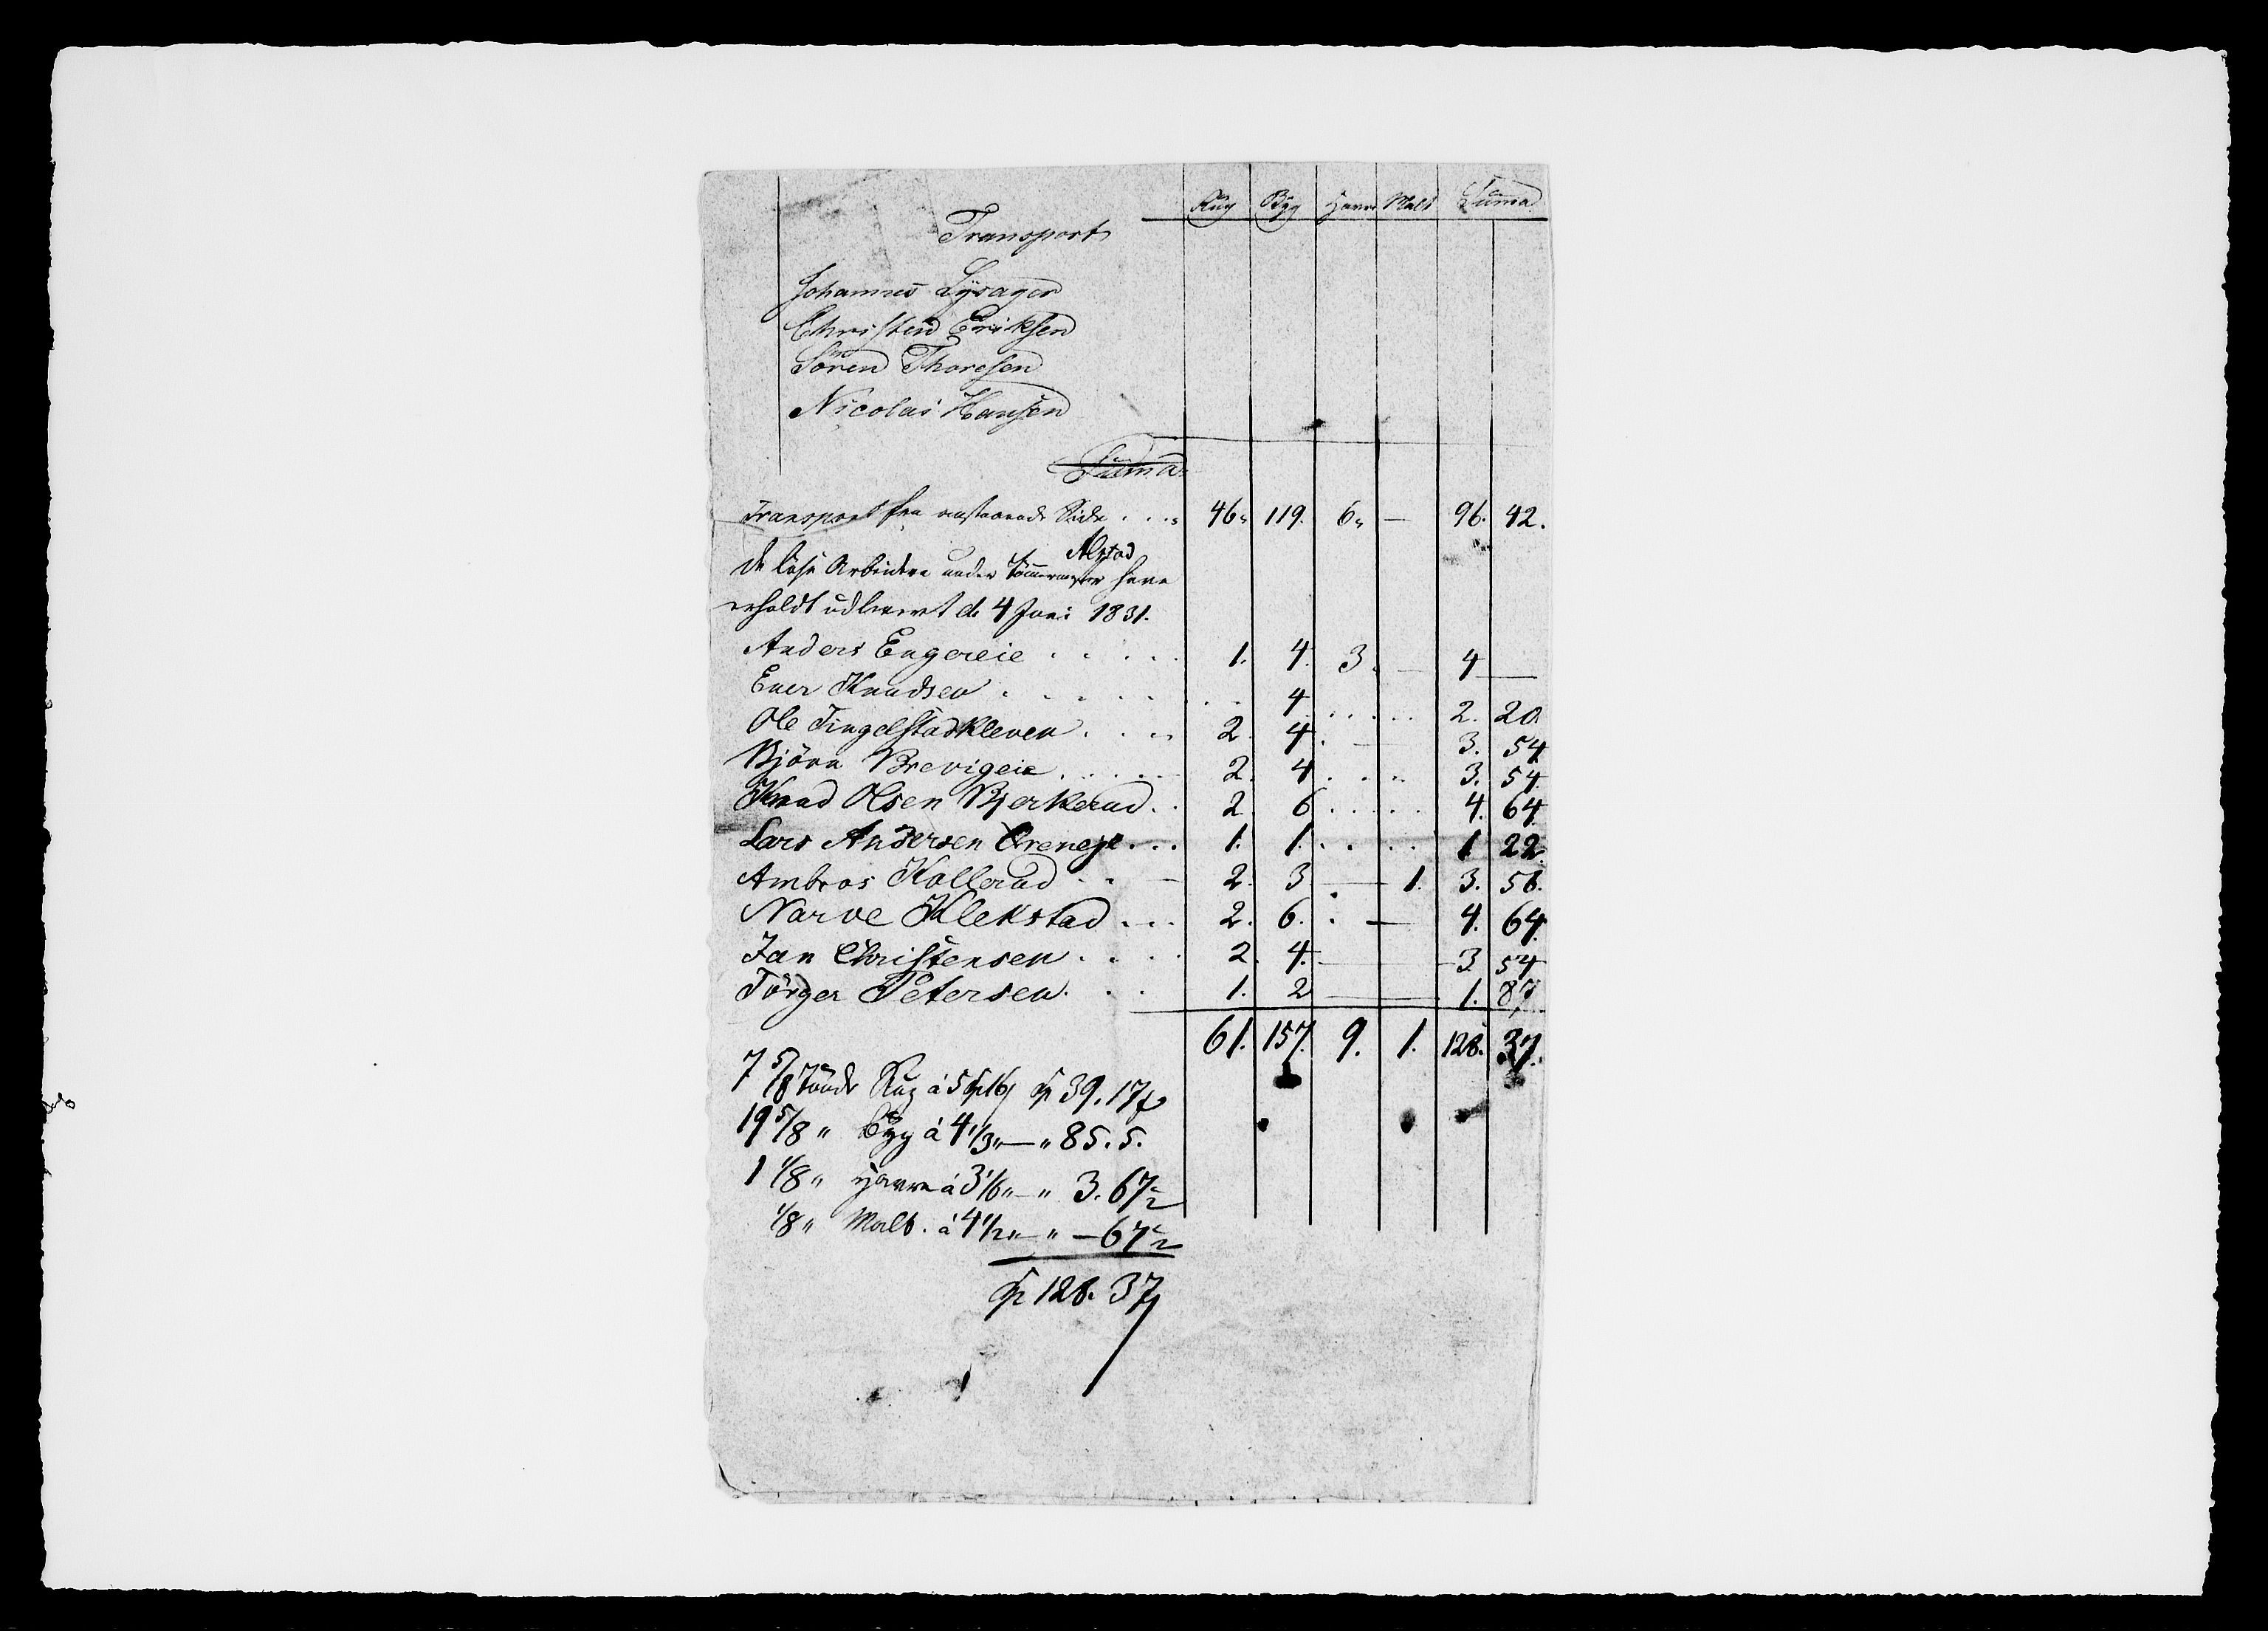 Rug Byg Havre Malt Summa
Transport
Johannes Lysager
Christen Eriksen
Sören Thoresen
Nicolai Hansen
Summa
Transport fra omstaaende Side . . . 46 119. 6 — 96. 42.
Alstad
de löse Arbeidere under Tömmermester have
erholdt udleveret d. 4 Juni 1831.
Anders Engereie . . . . . 1. 4. 3. — 4 —
Ener Knudsen . . . . . . . 4 . . . . . 2. 20.
Ole Tingelstadkleven . . . . 2. 4. — 3. 54
Björn Brevigeie . . . . . 2. 4 . . . 3. 54.
Knud Olsen Bjerkerud . . 2. 6 . . . . . 4. 64.
Lars Andersen Oreneje . . . 1. 1. . . . . 1 22.
Ambros Kollerud . . — 2. 3 — 1. 3. 56.
Narve Klekstad . . . 2. 6. . — 4. 64.
Jan Christensen . . . . 2. 4. — 3 54
Törger Petersen . . . 1. 2 — 1. 87
61. 157. 9. 1. 128. 37.
7 5/8 Tönde Rug á 5 Sp 16 Sp 39. 17
19 5/8 " Byg á 4 1/3 " — " 85. 5.
1 1/8 " Havre á 3 1/6 " — " 3. 67 1/2
1/8 " Malt. á 4 1/2 " — " — 67 1/2
Sp 128. 37